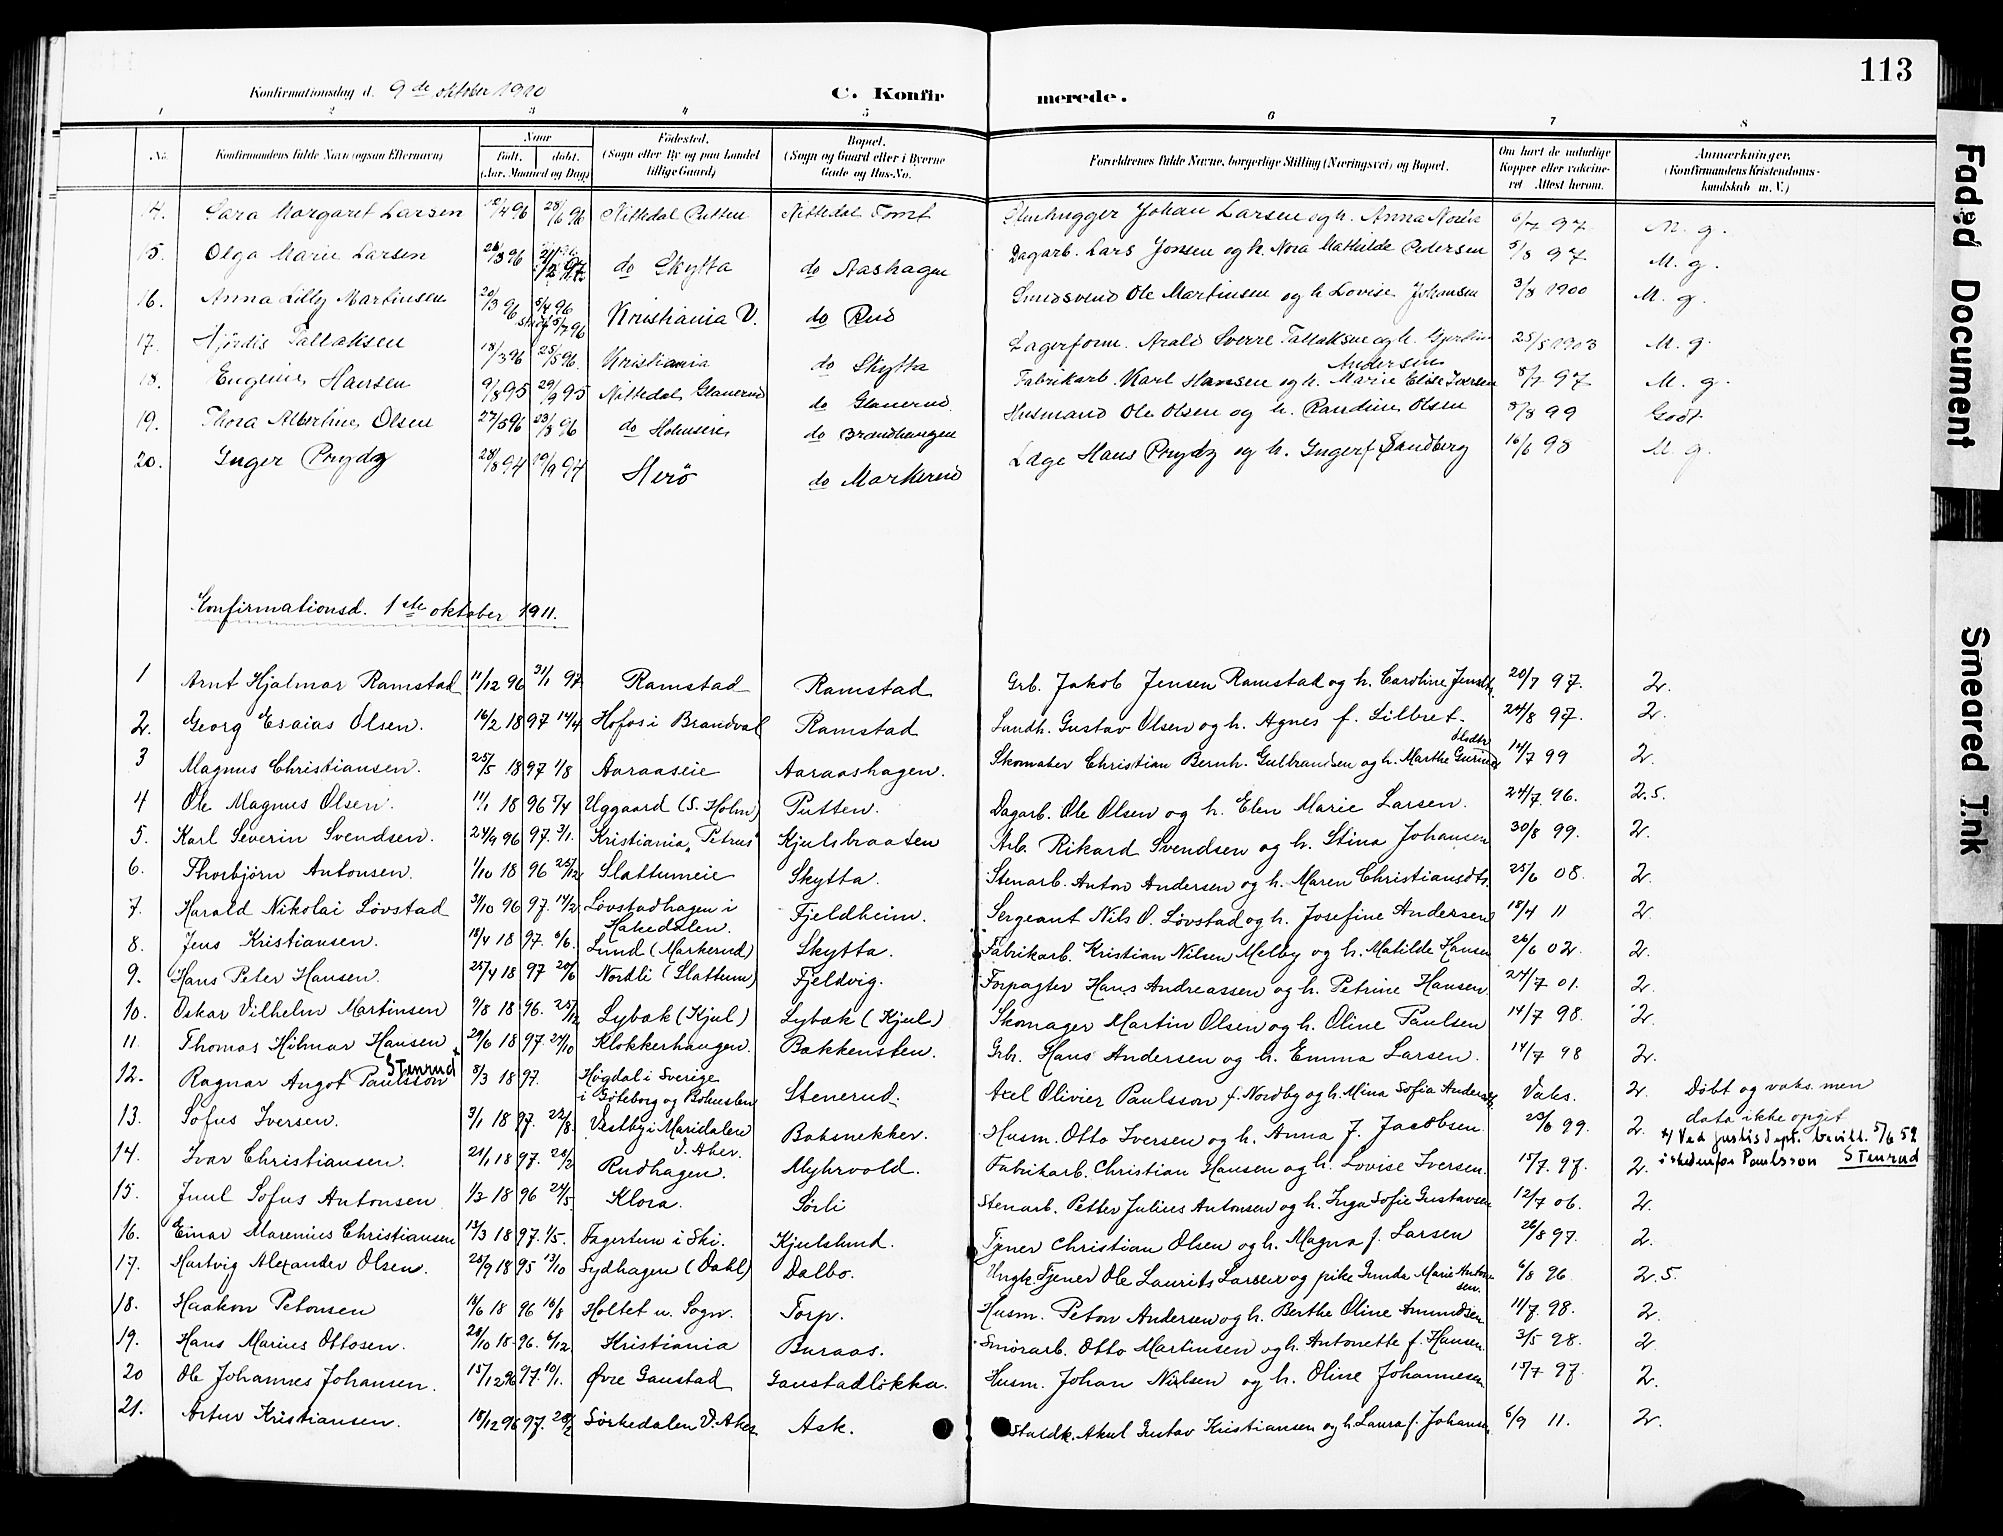 113
Konfirmationsdag d. 9de oktober 1910
C. Konfirmerede.
1 2 3 4 5 6 7 8
No. Konfirmandens fulde Navn (ogsaa Efternavn) Naar født, døbt. (Aar, Maaned og Dag) Fødested. (Sogn eller By og paa Landet tillige Gaard) Bopæl. (Sogn og Gaard eller i Byerne Gade og Hus-No. Forældrenes fulde Navne, borgerlige Stilling (Næringsvei) og Bopæl. Om havt de naturlige Kopper eller vaccineret. Attest herom. Anmærkninger. (Konfirmandens Kristendomskundskab m. V.)
14. Sara Margaret Larsen 12/4 96 28/6 96 Nittedal Putten Nittedal Tomt Johan Larsen og h. Anna 6/7 97 M. g.
15. Olga Marie Larsen 26/3 96 do Skytta do Aashagen Dagarb. Lars Jonsen og h. Nora Mathilde Petersen 5/8 97 M. g.
16. Anna Lilly Martinsen 20/3 96 5/4 96 Kristiania V. do Rud Smedsvend Ole Martinsen og h. Lovise Johansen 3/8 1900 M. g.
17. Hjördis Tallaksen 18/3 96 25/5 96. Kristiania do Skytta Lagerform. Arald Sverre Tallaksen og h. Andersen 25/5 1903 M. g.
18. Eugenie Hansen 9/8 95 29/9 95 Nittedal Glanerud do Glanerud Fabrikarb. Karl Hansen og h. Marie Elise Iversen 8/7 97 M. g.
19. Thora Albertine Olsen 27/5 96 23/8 96 do Holmseie do Brandhaugen Husmand Ole Olsen og h. Randine Olsen 8/8 99 Godt
20. Inger Prydz 28/8 94 19/9 94 Herö do Markerud Læge Hans Prydz og h. Inger f. Sandberg 16/6 98 M. g.
Confirmationsd. 1ste oktober 1911.
1 Arnt Hjalmar Ramstad 11/12 96 31/1 97 Ramstad Ramstad Grb. Jakob Jensen Ramstad og h. Caroline Jensdtr. 20/7 97. 2.
2. Georg Esaias Olsen. 16/2 18 97 14/4 Hofos i Brandval Ramstad Landh. Gustav Olsen og h. Agnes f. Lilbret. 24/8 97. 2.
3 Magnus Christiansen. 25/5 18 97 1/8 Aaraaseie Aaraashagen. Skomaker Christian Bernh. Gulbrandsen og h. Marthe 14/7 99 2.
4 Ole Magnus Olsen. 11/1 18 96 5/4 Uggaard (S. Holm) Putten. Dagarb. Ole Olsen og h. Elen Marie Larsen. 24/7 96. 2.5.
5. Karl Severin Svendsen. 24/9 96 97. 3/1. Kristiania "Petrus" Kjulsbraaten Arb. Rikard Svendsen og h. Stina Johansen 30/8 99. 2.
6. Thorbjörn Antonsen. 1/10 18 96 25/12 Slattumeie Skytta. Stenarb. Anton Andersen og h. Maren Christiansdtr. 25/6 08. 2.
7. Harald Nikolai Lövstad 3/10 96 97. 14/2 Lövstadhagen i Hakedalen. Fjeldheim. Sergeant Nils O. Lövstad og h. Josefine Andersen 18/4 11 2.
8. Jens Kristiansen. 18/4 18 97. 6/6. Lund (Markerud) Skytta. Fabrikarb. Kristian Nilsen Melby og h. Matilde Hansen 26/6 02. 2.
9. Hans Peter Hansen. 25/4 18 97 20/6 Nordli (Slattum) Fjeldvig. Forpagter Hans Andreassen og h. Petrine Hansen. 24/7 01. 2.
10. Oskar Vilhelm Martinsen 9/8 18 96. 25/12 Lybæk (Kjul) Lybæk (Kjul) Skomager Martin Olsen og h. Oline Paulsen 14/7 98. 2.
11. Thomas Hilmar Hansen 29/6 18 97. 24/10 Klokkerhaugen. Bakkensten. Grb. Hans Andersen og h. Emma Larsen. 14/7 98 2.
Stenrud x
12. Ragnar Angot Paulsson 8/3 18 97. Högdal i Sverige i Göteborg og Bohuslen Stenerud. Axel Olivier Paulsson f. Nordby og h. Mina Sofia Andersdtr. Vaks. 2. Döbt og vaks. men data ikke opgit
13. Sofus Iversen. 3/1 18 97. 22/8. Vestby i Maridalen V. Aker. Babsnekker. Husm. Otto Iversen og h. Anna J. Jacobsen 23/6 99. 2.
x/ Ved justisdept. bevill. 5/6 52 istedenfor Paulsson Stenrud
14. Ivar Christiansen. 21/1 18 97. 28/2 Rudhagen. Myhrvold. Fabrikarb. Christian Hansen og h. Lovise Iversen. 15/7. 97. 2.
15. Juul Sofus Antonsen 1/3 18 96 24/5 Klora. Sörli Stenarb. Petter Julius Antonsen og h. Inga Sofie Gustavsen 12/7 06. 2.
16. Einar Marenius Christiansen 13/3 18 97. 1/5. Fagertun i Ski. Kjulslund. Tjener Christian Olsen og h. Magna f. Larsen 26/8 97. 2.
17. Hartvig Alexander Olsen. 25/9 18 95 13/10 Sydhagen (Dahl) Dalbo. Ungk. Tjener Ole Laurits Larsen og pike Gunda Marie Antonsen. 6/8 96 2.5.
18. Haakon Petonsen 14/6 18 96 16/8 Holtet u. Sogn. Torp. Husm. Peton Andersen og h. Berthe Oline Amundsen 11/7. 98. 2.
19. Hans Marius Ottosen. 20/10 18 96. 6/12 Kristiania Buraas. Smörarb. Otto Martinsen og h. Antonette f. Hansen. 3/5 98. 2.
20 Ole Johannes Johansen. 15/12 96 97. 10/1. Øvre Gaustad Gaustadlökka. Husm. Johan Nielsen og h. Oline Johannesen 15/7 97. 2.
21. Artur Kristiansen. 18/12 96 97. 28/2 Sörkedalen V. Aker Ask. Staldk. Aksel Gustav Kristiansen og h. Laura f. Johansen 6/9 11. 2.
Faded Document
Smeared Ink